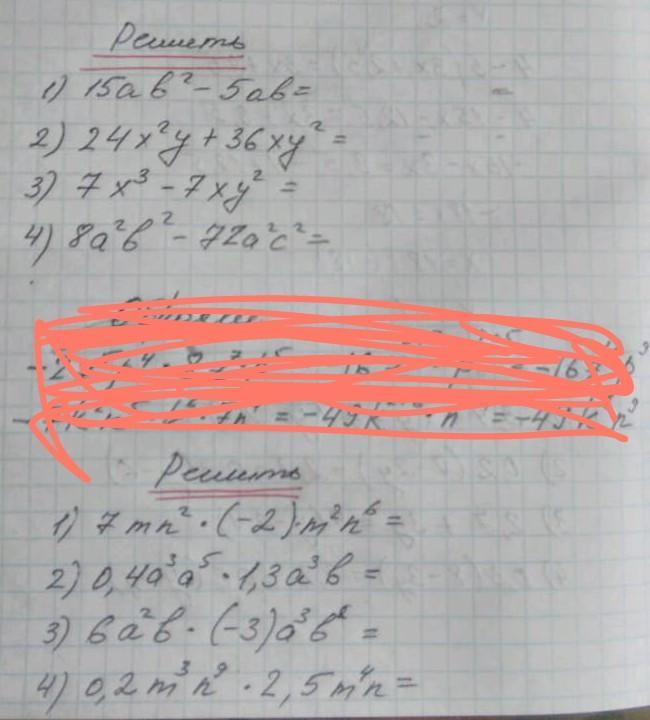 Решить
1) 15ab² - 5ab =
2) 24x²y + 36xy² =
3) 7x³ - 7xy² =
4) 8a²b² - 72a²c² =
Решить
1) 7mn² · (-2)·m²n⁶ =
2) 0,4a³a⁵ · 1,3a³b =
3) 6a²b · (-3)a³b⁸ =
4) 0,2m³n⁹ · 2,5m⁴n =